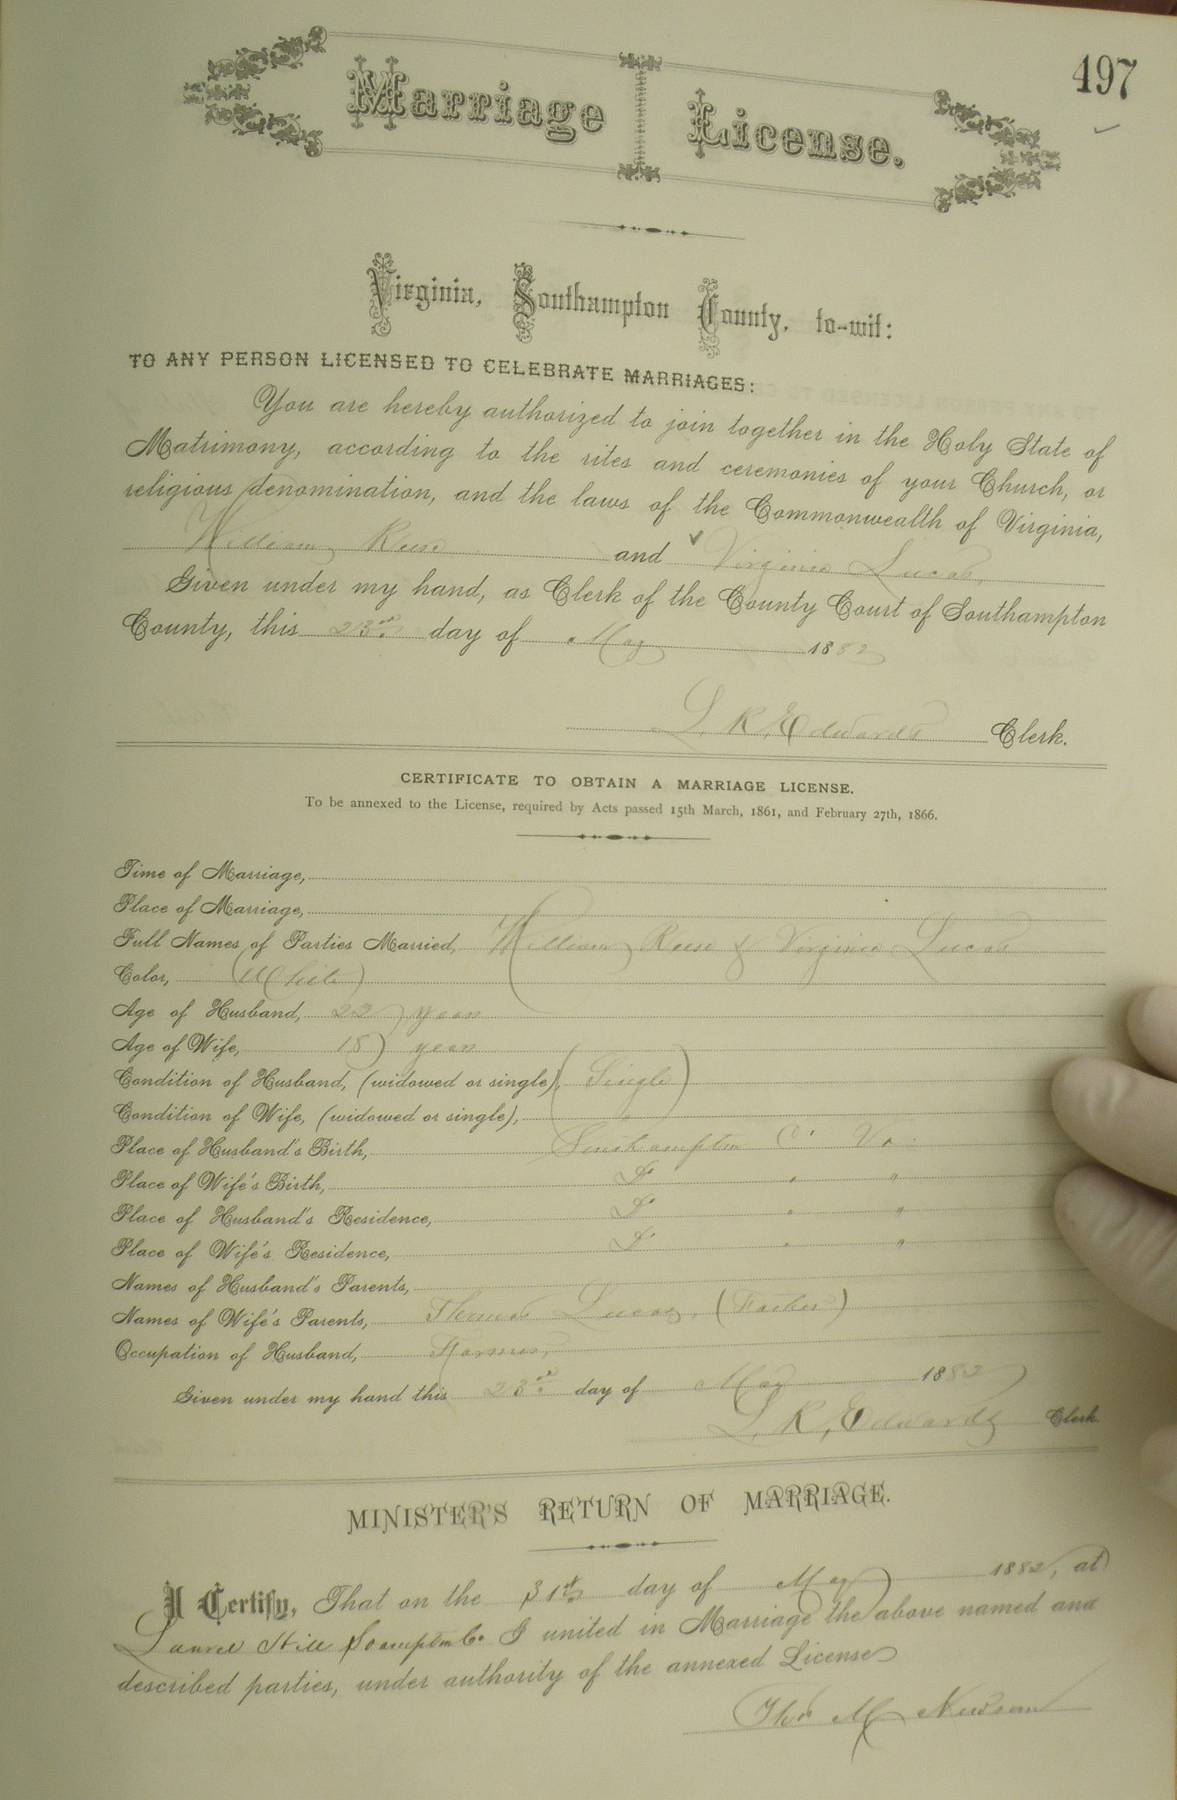 497
Marriage License.
Virginia, Southampton County, to-wit:
TO ANY PERSON LICENSED TO CELEBRATE MARRIAGES:
You are hereby authorized to join together in the Holy State of
Matrimony, according to the rites and ceremonies of your Church, or
religious denomination, and the laws of the Commonwealth of Virginia,
William Reese and Virginia Lucas,
Given under my hand, as Clerk of the County Court of Southampton
County, this 23rd day of May 1882
L. R. Edwards Clerk.
CERTIFICATE TO OBTAIN A MARRIAGE LICENSE.
To be annexed to the License, required by Acts passed 15th March, 1861, and February 27th, 1866.
Time of Marriage,
Place of Marriage,
Full Names of Parties Married, William Reese & Virginia Lucas
Color, (White)
Age of Husband, 22 years
Age of Wife, 18 years
Condition of Husband, (widowed or single), (Single)
Condition of Wife, (widowed or single), "
Place of Husband's Birth, Southampton Co. Va.
Place of Wife's Birth, Do " "
Place of Husband's Residence, Do " "
Place of Wife's Residence, Do " "
Names of Husband's Parents,
Names of Wife's Parents, Thomas Lucas, (Father)
Occupation of Husband, Farmer,
Given under my hand this 23rd day of May 1882
L. R. Edwards Clerk
MINISTER'S RETURN OF MARRIAGE.
I Certify, That on the 31st day of May 1882, at
Laurel Hill Shampton Co. I united in Marriage the above named and
described parties, under authority of the annexed License
Thos M Newsom